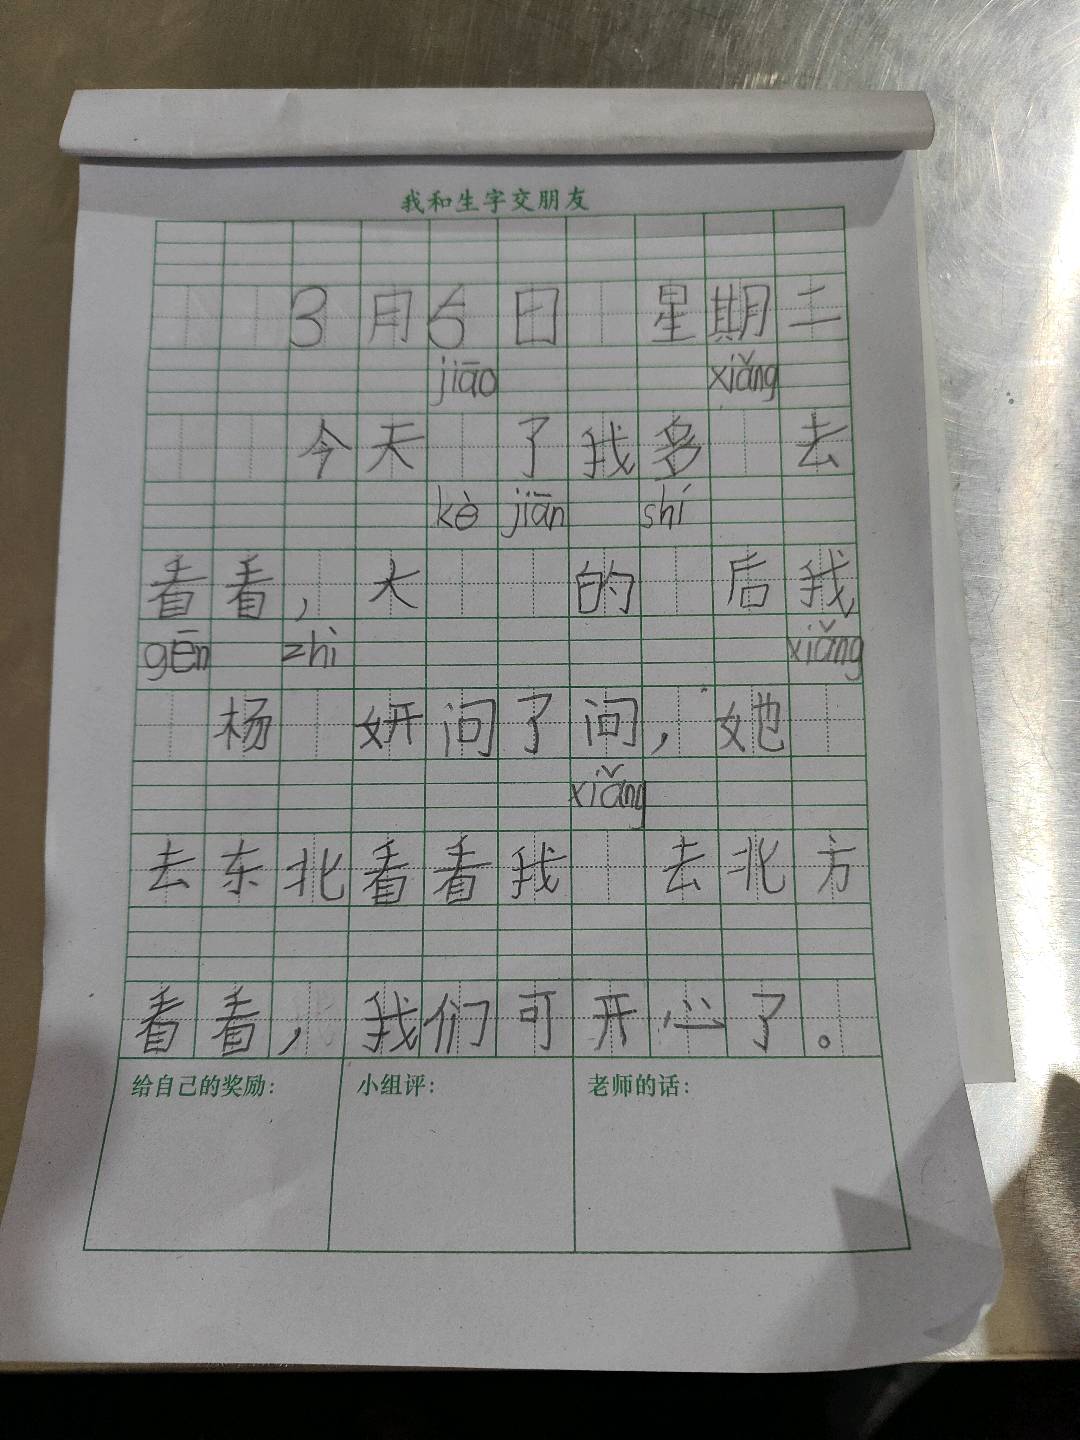 我和生字交朋友
3月6日 星期二
jiāo xiǎng
今天 了我多 去
kè jiān shí
看看，大 的 后我
gēn zhì xiǎng
杨 妍问了问，她
xiǎng
去东北看看我 去北方
看看，我们可开心了。
给自己的奖励： 小组评： 老师的话：